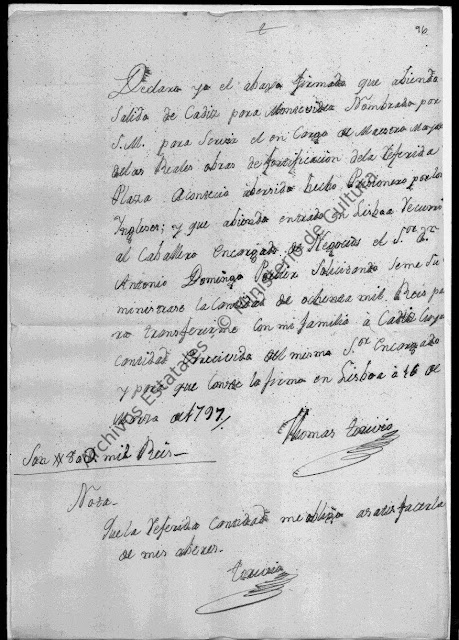 96
Declaro yo el abaxo firmado que abiendo
Salido de Cadiz para Montevideo Nombrado por
S.M. para Servir el en Cargo de Maestro Mayor
de las Reales obras de fortificacion dela Referida
Plaza Acontecio abersido hecho Prisionero por los
Ingleses; y que abiendo entrado en Lisboa Recurri
al Caballero Encargado de Negocios el S.or D.n
Antonio Domingo Porlier Solicitando Seme Su
ministrase la Cantidad de ochenta mil Reis pa
ra transferirme con mi familia à Cadiz Cuya
Cantidad Hé recivida del mismo S.or Encargado
y para que Conste la firmo en Lisboa à 16 de
de 1797
Thomas Toribio
Son mil Reis
Nota
Que la Referida Cantidad me obligo a satisfacerla
de mis aberes.
Toribio
Archivos Estatales © Ministerio de Cultura